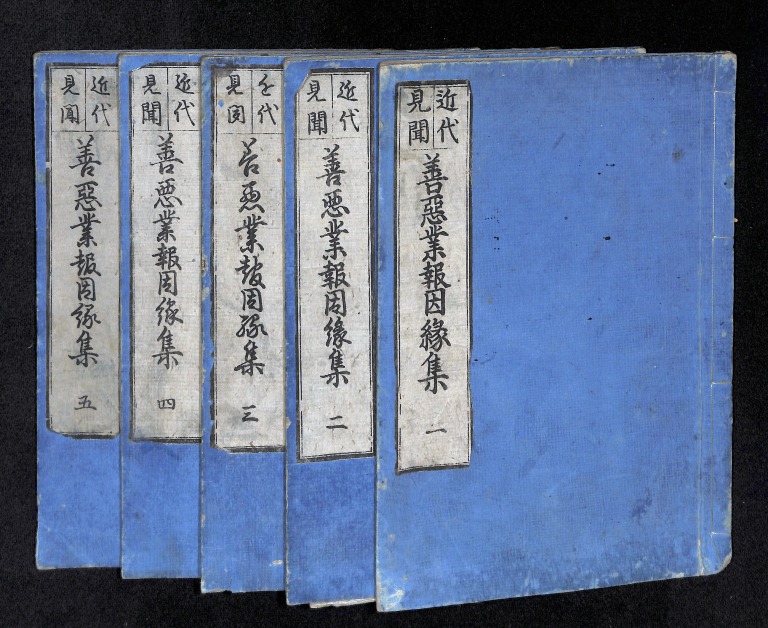 近代
見聞
善惡業報因緣集
一
近代
見聞
善悪業報因縁集
二
近代
見聞
善悪業報因縁集
三
近代
見聞
善悪業報因縁集
四
近代
見聞
善惡業報因縁集
五